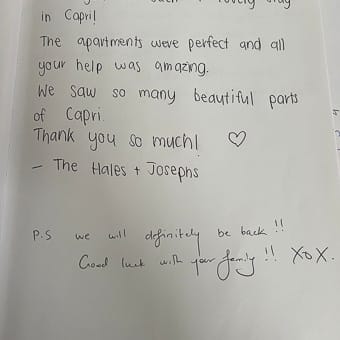 such a lovely stay
in Capri!
The apartments were perfect and all
your help was amazing.
We saw so many beautiful parts
of Capri.
Thank you so much! ♡
– The Hales + Josephs
P.S we will definitely be back !!
Good luck with your family !! XOX.